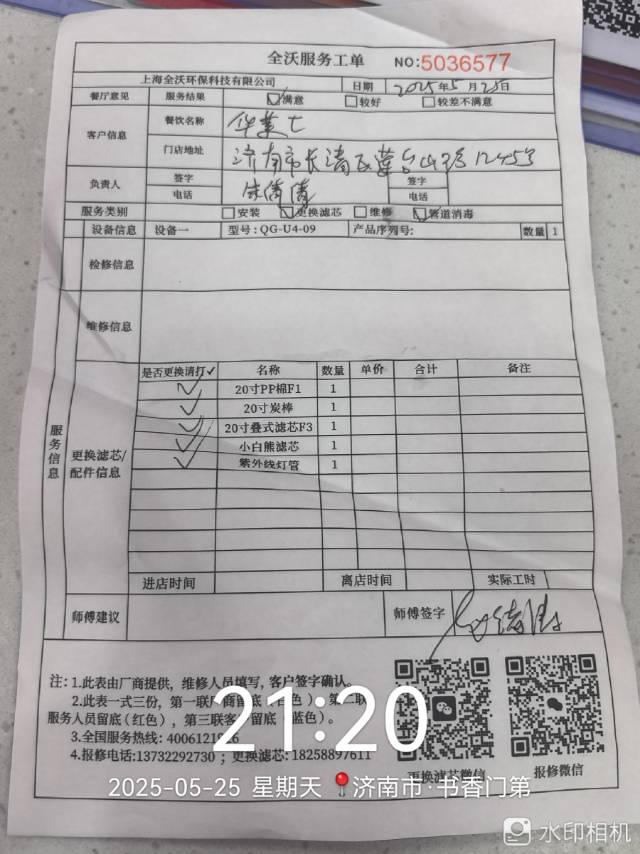 全沃服务工单 NO:5036577
上海全沃环保科技有限公司 日期 2025年5月25日
餐厅意见 服务结果 ☑满意 □较好 □较差不满意
客户信息 餐饮名称 华莱士
门店地址 济南市长清区 1245号
负责人 签字 签字
电话 电话
服务类别 □安装 ☑更换滤芯 □维修 ☑管道消毒
设备信息 设备一 型号:QG-U4-09 产品序列号: 数量 1
检修信息
维修信息
服务信息
更换滤芯/配件信息
是否更换请打✓ 名称 数量 单价 合计 备注
✓ 20寸PP棉F1 1
✓ 20寸炭棒 1
✓ 20寸叠式滤芯F3 1
✓ 小白熊滤芯 1
✓ 紫外线灯管 1
进店时间 离店时间 实际工时
师傅建议 师傅签字
注:1.此表由厂商提供，维修人员填写，客户签字确认。
2.此表一式三份，第一联
服务人员留底(红色)，第三联客 留底(蓝色)。
3.全国服务热线:4006121
4.报修电话:13732292730；更换滤芯:18258897611
更换滤芯微信 报修微信
21:20
2025-05-25 星期天 济南市·书香门第
水印相机